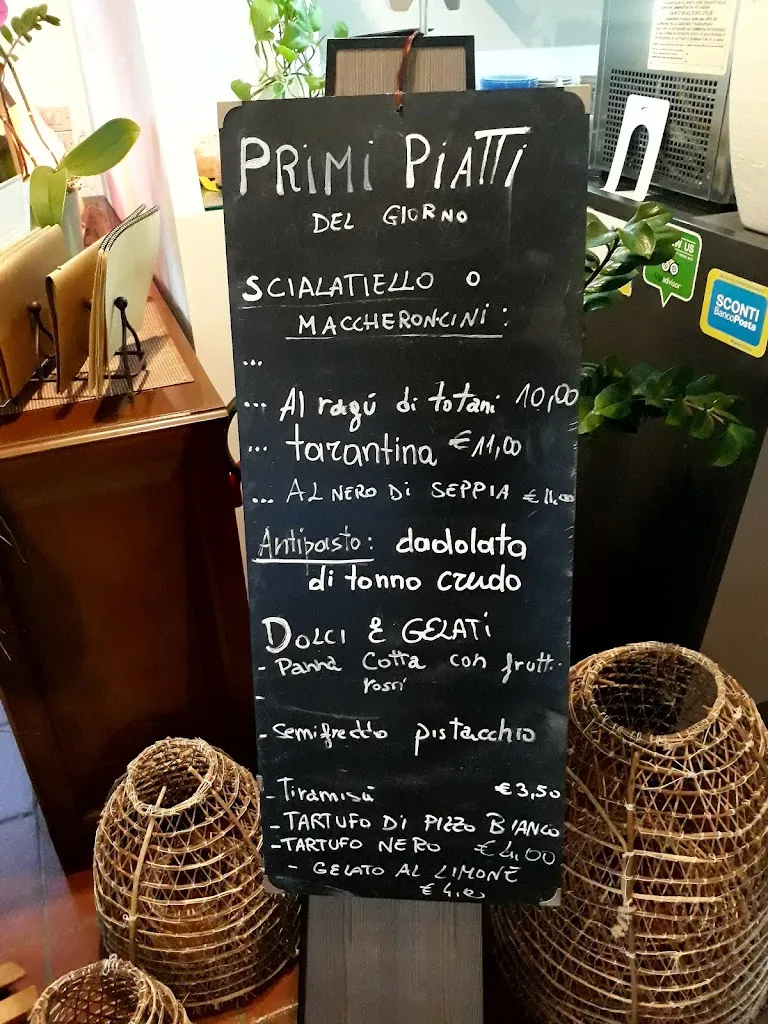 PRIMI PIATTI
DEL GIORNO
SCIALATIELLO O
MACCHERONCINI:
...
... Al ragú di totani 10,00
... tarantina €11,00
... AL NERO DI SEPPIA €11,00
Antipasto: dadolata
di tonno crudo
DOLCI E GELATI
- Panna Cotta con frutti
rossi
-
- Semifreddo pistacchio
- Tiramisú €3,50
- TARTUFO DI PIZZO BIANCO
- TARTUFO NERO €4,00
- GELATO AL LIMONE
€4,00
US
advisor
SCONTI
BancoPosta